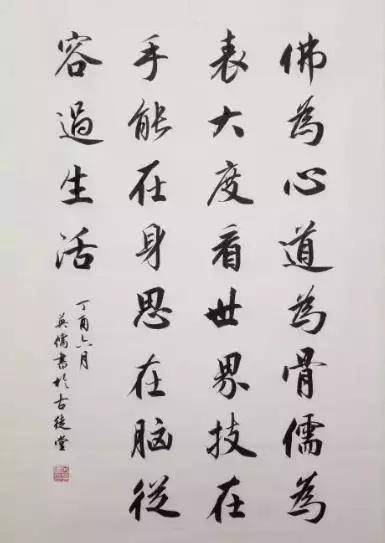 佛為心道為骨儒為
表大度看世界技在
手能在身思在脑從
容過生活
丁酉六月
英儒書於古徒堂